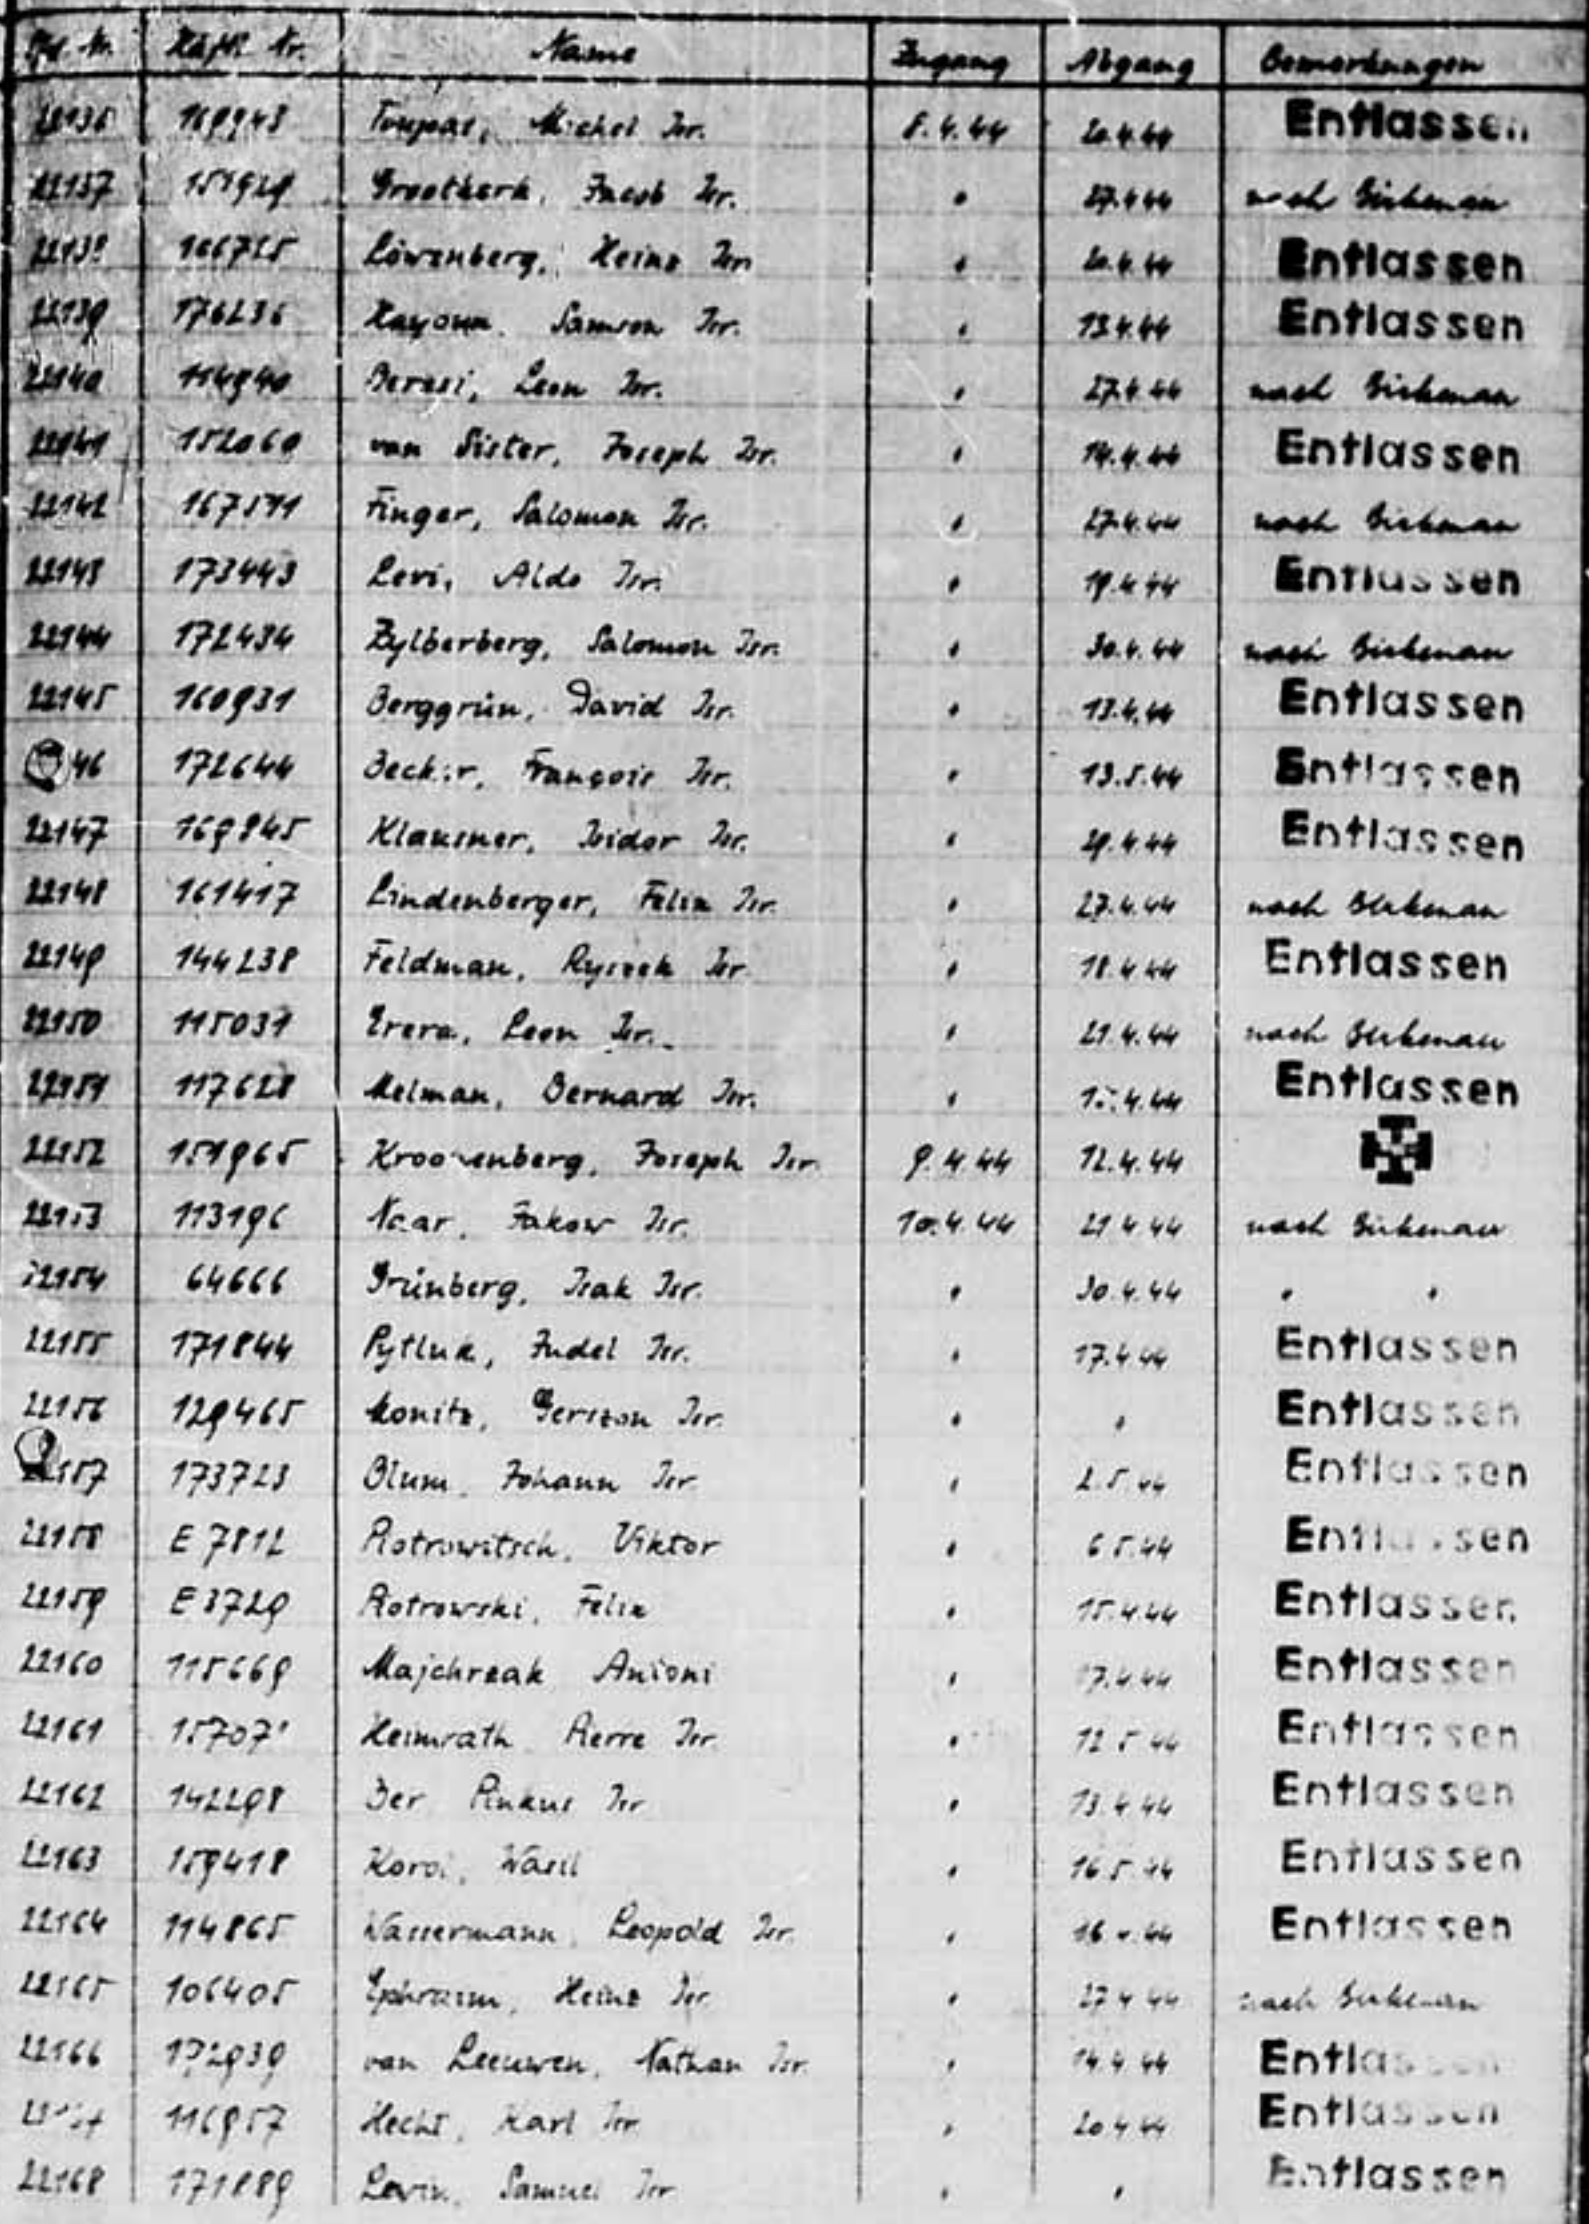 Lfd. Nr. Häftl. Nr. Name Zugang Abgang Bemerkungen
22136 169943 Michel Isr. 8.4.44 20.4.44 Entlassen
22137 151929 Grootkerk, Jacob Isr. " 27.4.44 nach Birkenau
22138 166725 Löwenberg, Heinz Isr. " 20.4.44 Entlassen
22139 176236 Hayoun, Samson Isr. " 13.4.44 Entlassen
22140 114940 Leon Isr. " 27.4.44 nach Birkenau
22141 152060 van Sister, Joseph Isr. " 14.4.44 Entlassen
22142 167511 Finger, Salomon Isr. " 27.4.44 nach Birkenau
22143 173443 Levi, Aldo Isr. " 19.4.44 Entlassen
22144 172434 Zylberberg, Salomon Isr. " 30.4.44 nach Birkenau
22145 160931 Berggrün, David Isr. " 13.4.44 Entlassen
46 172644 Becker, François Isr. " 13.5.44 Entlassen
22147 169845 Klausner, Isidor Isr. " 29.4.44 Entlassen
22148 161417 Lindenberger, Felix Isr. " 27.4.44 nach Birkenau
22149 144238 Feldman, Ryszek Isr. " 18.4.44 Entlassen
22150 115031 Erera, Leon Isr. " 21.4.44 nach Birkenau
22151 117628 Melman, Bernard Isr. " 4.44 Entlassen
22152 151965 Kroonenberg, Joseph Isr. 9.4.44 12.4.44
22153 113196 Naar, Jakow Isr. 10.4.44 21.4.44 nach Birkenau
22154 64666 Grünberg, Isak Isr. " 30.4.44 " "
22155 171844 Pytluk, Judel Isr. " 17.4.44 Entlassen
22156 129465 Monitz, Gerszon Isr. " " Entlassen
22157 173723 Blum, Johann Isr. " 2.5.44 Entlassen
22158 E 7812 Piotrowitsch, Viktor " 6.5.44 Entlassen
22159 E 3729 Piotrowski, Felix " 15.4.44 Entlassen
22160 115669 Majchrzak Antoni " 17.4.44 Entlassen
22161 Heimrath Pierre Isr. " 12.5.44 Entlassen
22162 142298 Ber Pinkus Isr. " 13.4.44 Entlassen
22163 159418 Korol, Wasil " 16.5.44 Entlassen
22164 114865 Wassermann, Leopold Isr. " 16.4.44 Entlassen
22165 106405 Ephraim, Heinz Isr. " 27.4.44 nach Birkenau
22166 172939 van Leeuwen, Nathan Isr. " 14.4.44 Entlassen
116957 Hecht, Karl Isr. " 20.4.44 Entlassen
22168 171889 Levin, Samuel Isr. " " Entlassen